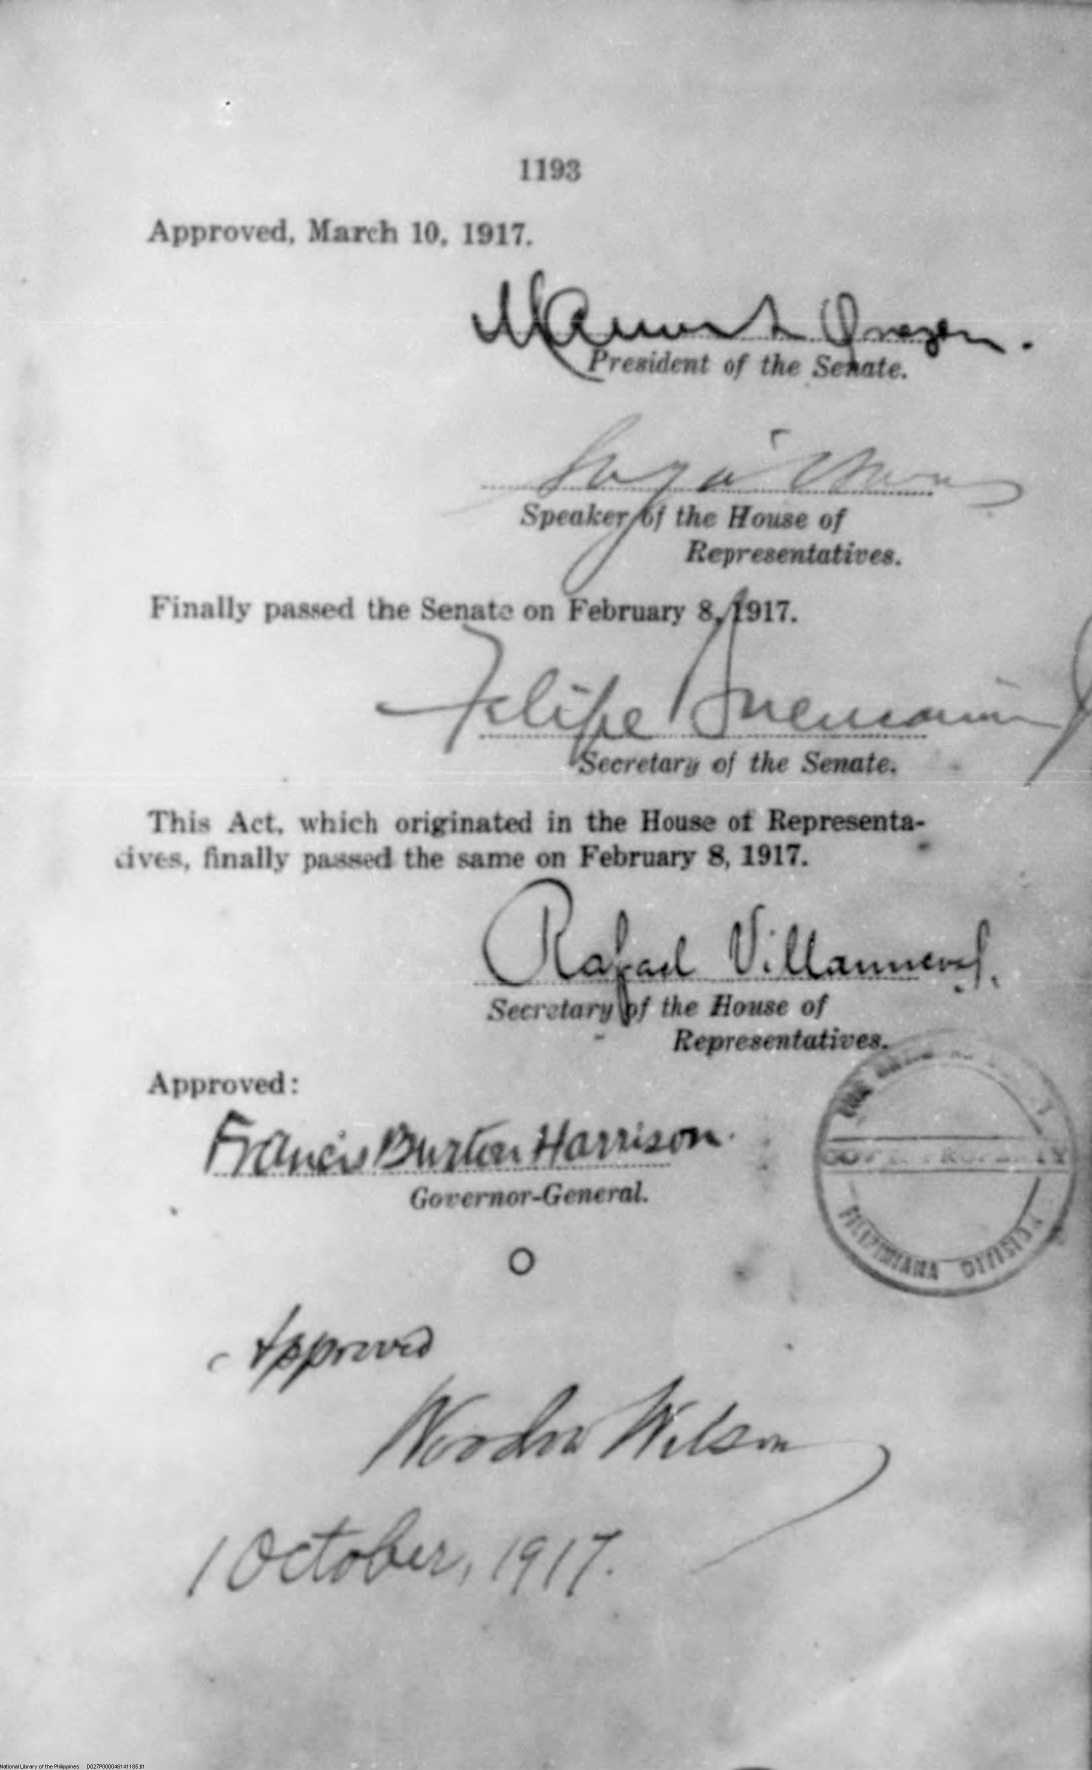 1193
Approved, March 10, 1917.
Manuel Quezon.
President of the Senate.
Speaker of the House of
Representatives.
Finally passed the Senate on February 8, 1917.
Felipe Buencamino Jr
Secretary of the Senate.
This Act, which originated in the House of Representa-
tives, finally passed the same on February 8, 1917.
Rafael Villanueva.
Secretary of the House of
Representatives.
Approved:
Francis Burton Harrison.
Governor-General.
GOVT. PROPERTY
FILIPINIANA DIVISION
Approved
Woodrow Wilson
1 October, 1917.
National Library of the Philippines